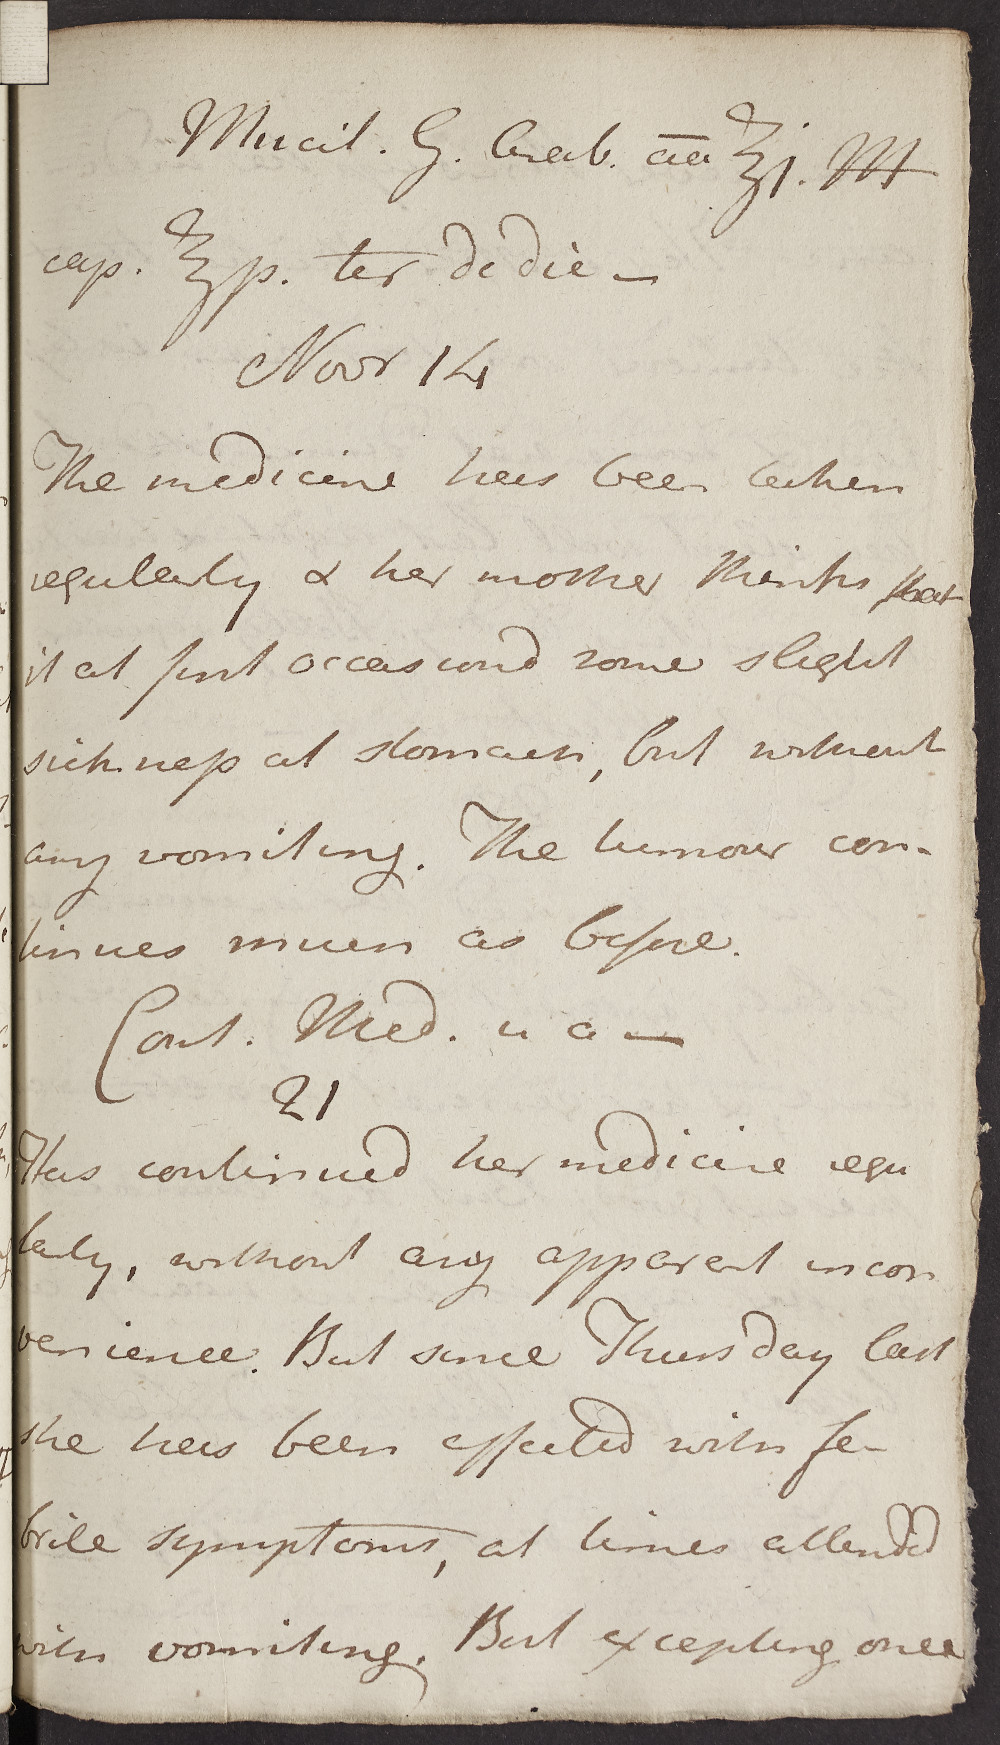 Mucil. G. Arab. aa ℥j. M
cap. ℥ſs. ter de die —
Novr 14
The medicine has been taken
regularly & her mother thinks that
it at first occasiond some slight
sickness at stomach, but without
any vomiting. The tumour con-
tinues much as before.
Cont. Med. u a —
21
Has continued her medicine regu
larly, without any apparent incon
venience. But since Thursday last
she has been affected with fe-
brile symptoms, at times attended
with vomiting. But excepting once